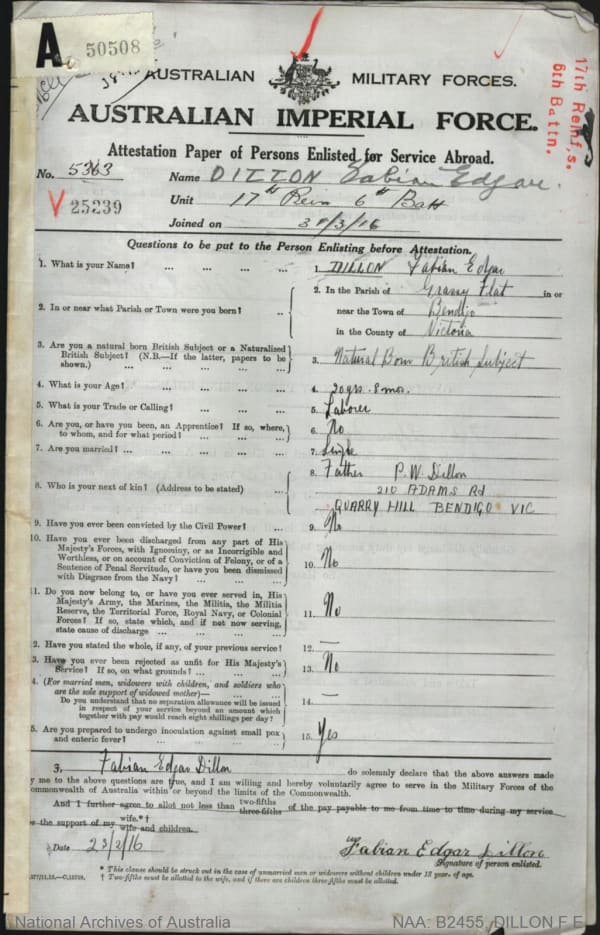 A
50508
AUSTRALIAN MILITARY FORCES.
AUSTRALIAN IMPERIAL FORCE.
17th Reinf,s.
6th Battn.
Attestation Paper of Persons Enlisted for Service Abroad.
No. 5363 Name DILLON Fabian Edgar.
V 25239 Unit 17th Rein 6th Batt
Joined on 3/3/16
Questions to be put to the Person Enlisting before Attestation.
1. What is your Name? ... ... ... ... 1. DILLON Fabian Edgar
2. In or near what Parish or Town were you born? ... 2. In the Parish of Grassy Flat in or
near the Town of Bendigo
in the County of Victoria
3. Are you a natural born British Subject or a Naturalized
British Subject? (N.B.—If the latter, papers to be
shown.) ... ... ... ... 3. Natural Born British Subject
4. What is your Age? ... ... ... 4. 20 yrs. 8 mos.
5. What is your Trade or Calling? ... ... ... 5. Laborer
6. Are you, or have you been, an Apprentice? If so, where,
to whom, and for what period? ... ... ... 6. No
7. Are you married? ... ... ... ... 7. Single
8. Who is your next of kin? (Address to be stated) ... 8. Father P. W. Dillon
210 ADAMS Rd
QUARRY HILL BENDIGO VIC
9. Have you ever been convicted by the Civil Power? ... 9. No
10. Have you ever been discharged from any part of His
Majesty's Forces, with Ignominy, or as Incorrigible and
Worthless, or on account of Conviction of Felony, or of a
Sentence of Penal Servitude, or have you been dismissed
with Disgrace from the Navy? ... ... ... 10. No
1. Do you now belong to, or have you ever served in, His
Majesty's Army, the Marines, the Militia, the Militia
Reserve, the Territorial Force, Royal Navy, or Colonial
Forces? If so, state which, and if not now serving,
state cause of discharge ... ... ... 11. No
2. Have you stated the whole, if any, of your previous service? 12. —
3. Have you ever been rejected as unfit for His Majesty's
Service? If so, on what grounds? ... ... 13. No
4. (For married men, widowers with children, and soldiers who
are the sole support of widowed mother)—
Do you understand that no separation allowance will be issued
in respect of your service beyond an amount which
together with pay would reach eight shillings per day? 14. —
5. Are you prepared to undergo inoculation against small pox
and enteric fever? ... ... ... ... 15. Yes
3, Fabian Edgar Dillon do solemnly declare that the above answers made
y me to the above questions are true, and I am willing and hereby voluntarily agree to serve in the Military Forces of the
ommonwealth of Australia within or beyond the limits of the Commonwealth.
And I further agree to allot not less than two-fifths three-fifths of the pay payable to me from time to time during my service
the support of my wife.*†
wife and children.
Date 23/2/16
Fabian Edgar Dillon
Signature of person enlisted.
* This clause should be struck out in the case of unmarried men or widowers without children under 18 year of age.
† Two-fifths must be allotted to the wife, and if there are children three-fifths must be allotted.
National Archives of Australia NAA: B2455, DILLON F E